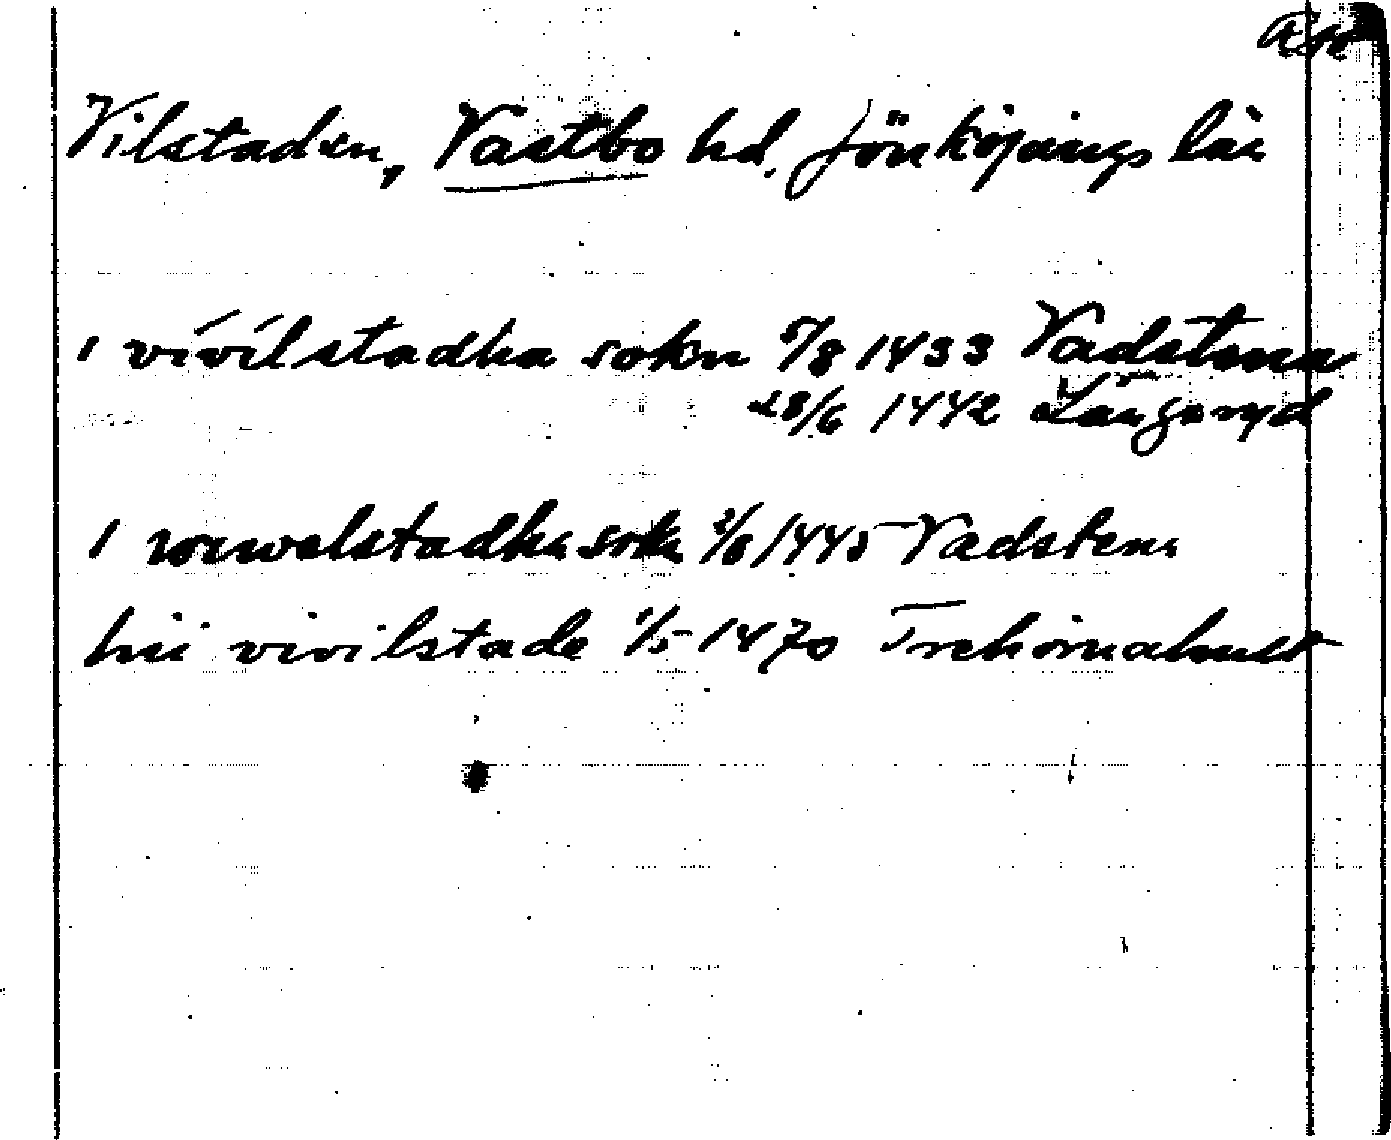 Vilstaden, Västbo hd, Jönköpings län
i vívílstadha sokn 5/8 1433 Vadstena
28/6 1442 Långaryd
i wiwelstadha sokn 2/8 1445 Vadstena
hii vivilstade 1/5 1470 Trehörnahult